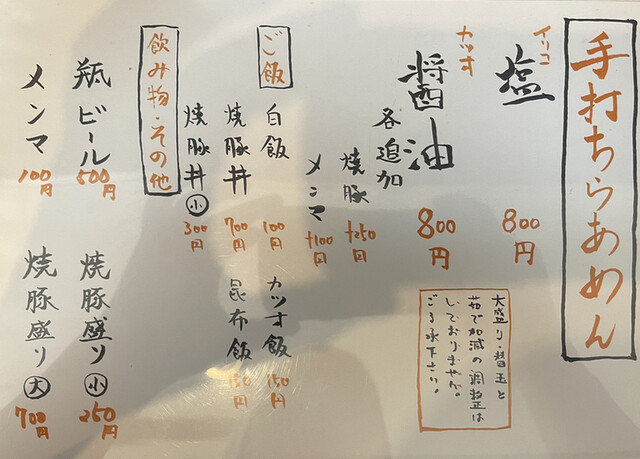 手打ちらあめん
イリコ
塩
800円
カツオ
醤油
800円
各追加
焼豚
+250円
メンマ
+100円
大盛り・替玉と
茹で加減の調整は
しておりません。
ご了承下さい。
ご飯
白飯
100円
カツオ飯
150円
焼豚丼
700円
昆布飯
150円
焼豚丼 小
300円
飲み物・その他
瓶ビール
500円
焼豚盛り 小
250円
メンマ
100円
焼豚盛り 大
700円